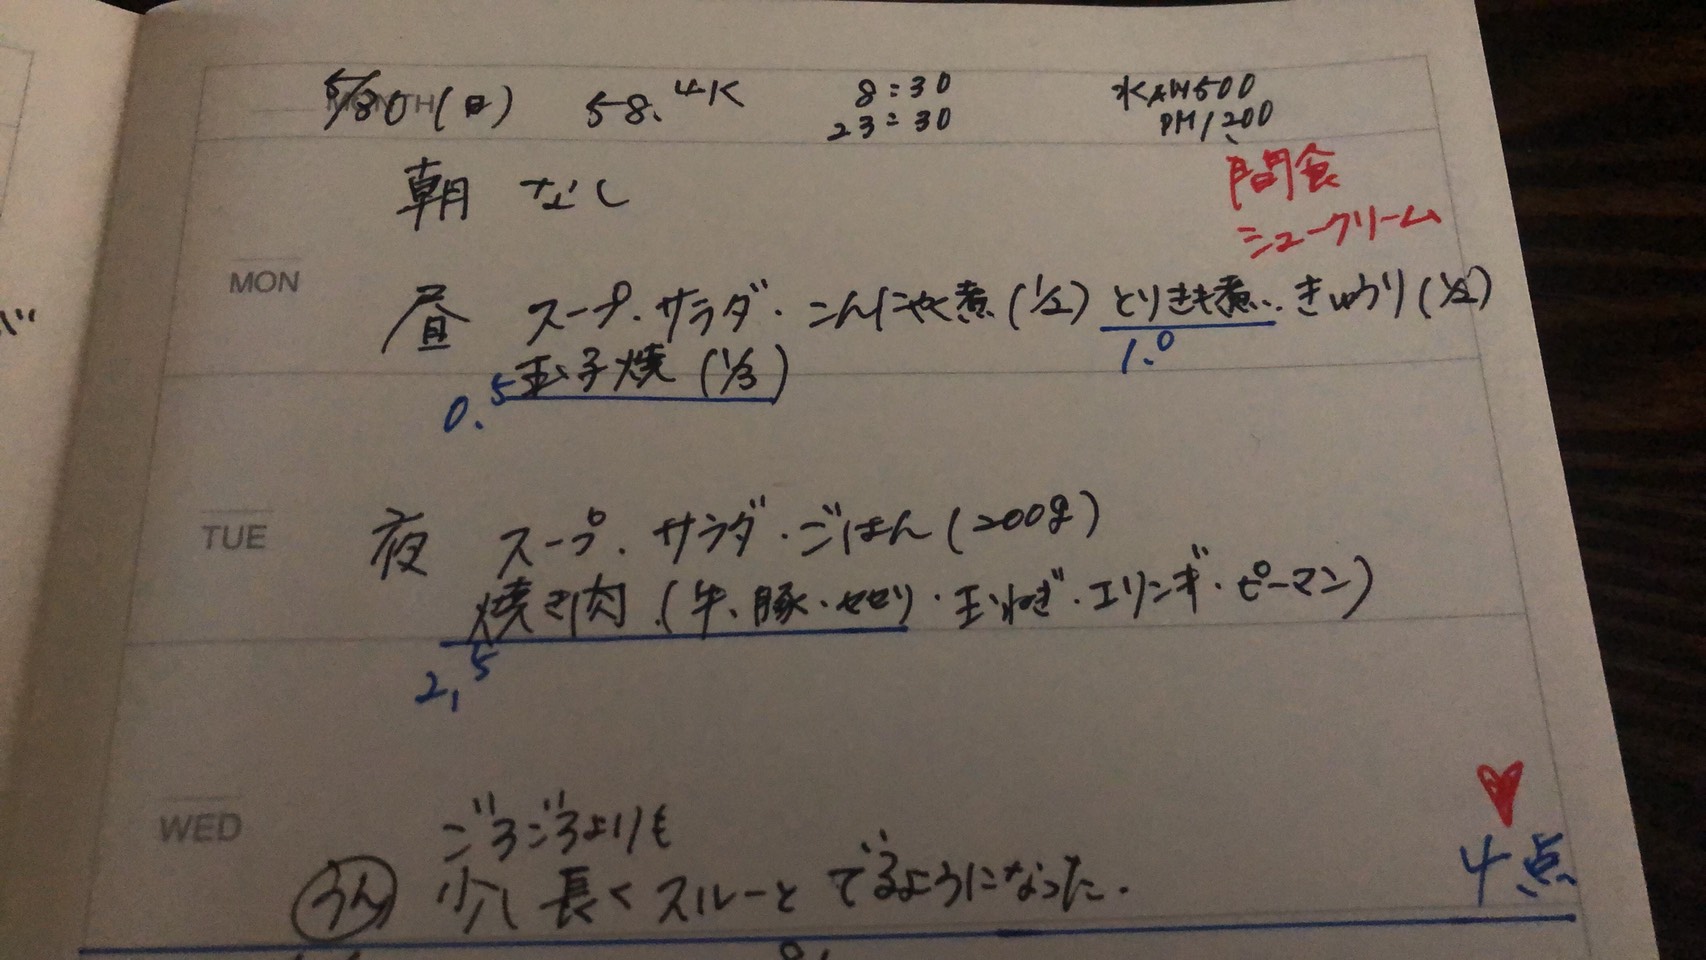 MONTH
5/30(日) 58.4K 8:30 水AM500
23:30 PM1,200
朝 なし
間食
シュークリーム
MON
昼 スープ・サラダ・こんにゃく煮(1/2) とりきも煮・きゅうり(1/2)
1.0
玉子焼(1/3)
0.5
TUE
夜 スープ・サラダ・ごはん(200g)
焼き肉(牛、豚・セセリ・玉ねぎ・エリンギ・ピーマン)
2,5
WED
ごろごろよりも
うん 少し長くスルーとでるようになった.
4点